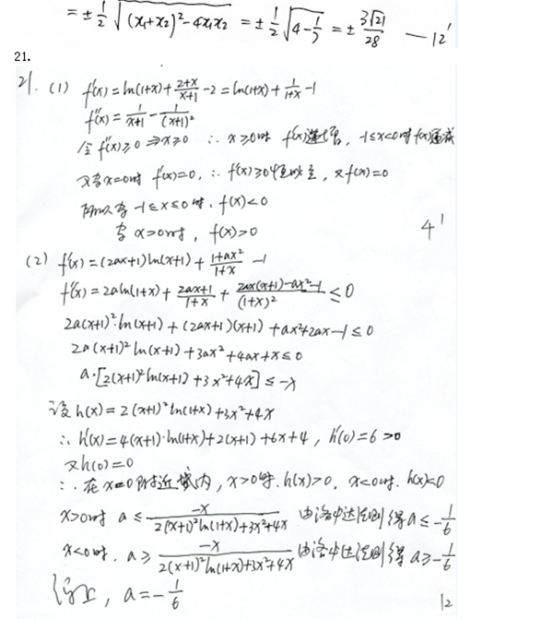 = ± 1/2 √((x₁+x₂)² - 4x₁x₂) = ± 1/2 √(4 - 1/7) = ± 3√21/28 — 12'
21.
21. (1) f'(x) = ln(1+x) + (2+x)/(x+1) - 2 = ln(1+x) + 1/(1+x) - 1
f''(x) = 1/(x+1) - 1/(x+1)²
令 f''(x) ≥ 0 ⇒ x ≥ 0 ∴ x ≥ 0时 f'(x)递增, -1≤x<0时f'(x)递减
又当x=0时 f'(x)=0, ∴ f'(x)≥0恒成立, 又f(0)=0
所以当 -1≤x≤0时, f(x)<0
当 x>0时, f(x)>0
4'
(2) f'(x) = (2ax+1)ln(x+1) + (1+ax²)/(1+x) - 1
f''(x) = 2aln(1+x) + (2ax+1)/(1+x) + (2ax(x+1)-ax²-1)/(1+x)² ≤ 0
2a(x+1)²·ln(x+1) + (2ax+1)(x+1) + ax²+2ax-1 ≤ 0
2a(x+1)² ln(x+1) + 3ax² + 4ax + x ≤ 0
a·[2(x+1)² ln(x+1) + 3x² + 4x] ≤ -x
设 h(x) = 2(x+1)² ln(1+x) + 3x² + 4x
∴ h'(x) = 4(x+1)·ln(1+x) + 2(x+1) + 6x + 4, h'(0) = 6 > 0
又h(0) = 0
∴ 在 x=0 附近域内, x>0时. h(x)>0, x<0时. h(x)<0
x>0时 a ≤ -x/(2(x+1)² ln(1+x)+3x²+4x) 由洛必达法则得 a ≤ -1/6
x<0时. a ≥ -x/(2(x+1)² ln(1+x)+3x²+4x) 由洛必达法则得 a ≥ -1/6
综上, a = -1/6
12